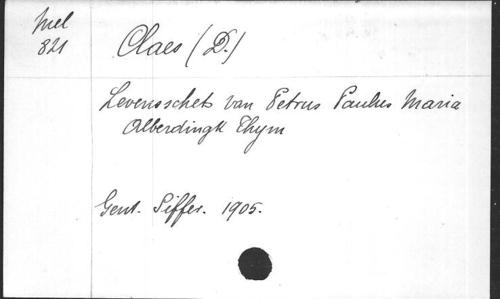 Mel
821
Claes (D.)
Levensschets van Petrus Paulus Maria
Alberdingk Thym
Gent. Siffer. 1905.